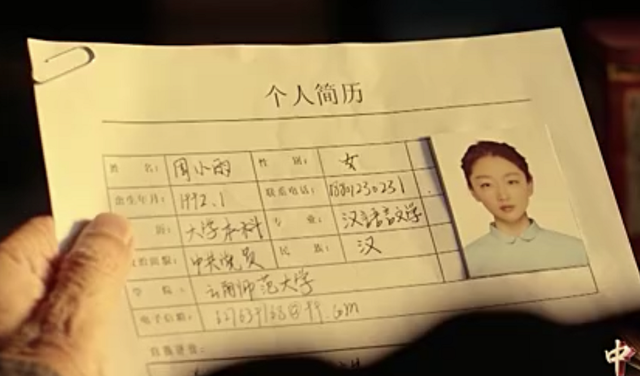 个人简历
姓 名: 周小雨 性 别: 女
出生年月: 1992.1 联系电话:
历: 大学本科 专 业: 汉语言文学
中共党员 民 族: 汉
学 院: 云南师范大学
电子信箱:
自我评价:
中